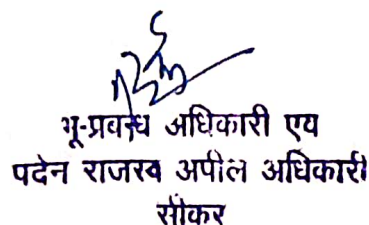 भू-प्रबन्ध अधिकारी एय
पदेन राजस्व अपील अधिकारी
सीकर